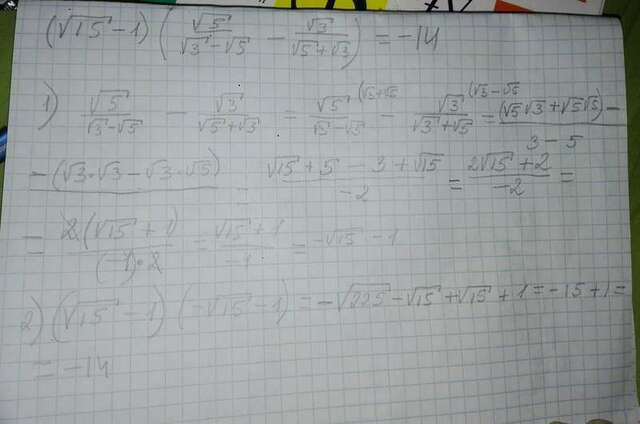 (√15 - 1) (√5/(√3 - √5) - √3/(√5 + √3)) = -14
1) √5/(√3 - √5) - √3/(√5 + √3) = √5/(√3 - √5) (√3 + √5 - √3/(√3 + √5) (√3 - √5 = (√5 √3 + √5 √5) -
- (√3 · √3 - √3 · √5) / 3 - 5 = (√15 + 5 - 3 + √15)/-2 = (2√15 + 2)/-2 =
= 2(√15 + 1)/((-1) · 2) = (√15 + 1)/-1 = -√15 - 1
2) (√15 - 1) (-√15 - 1) = -√225 - √15 + √15 + 1 = -15 + 1 =
= -14